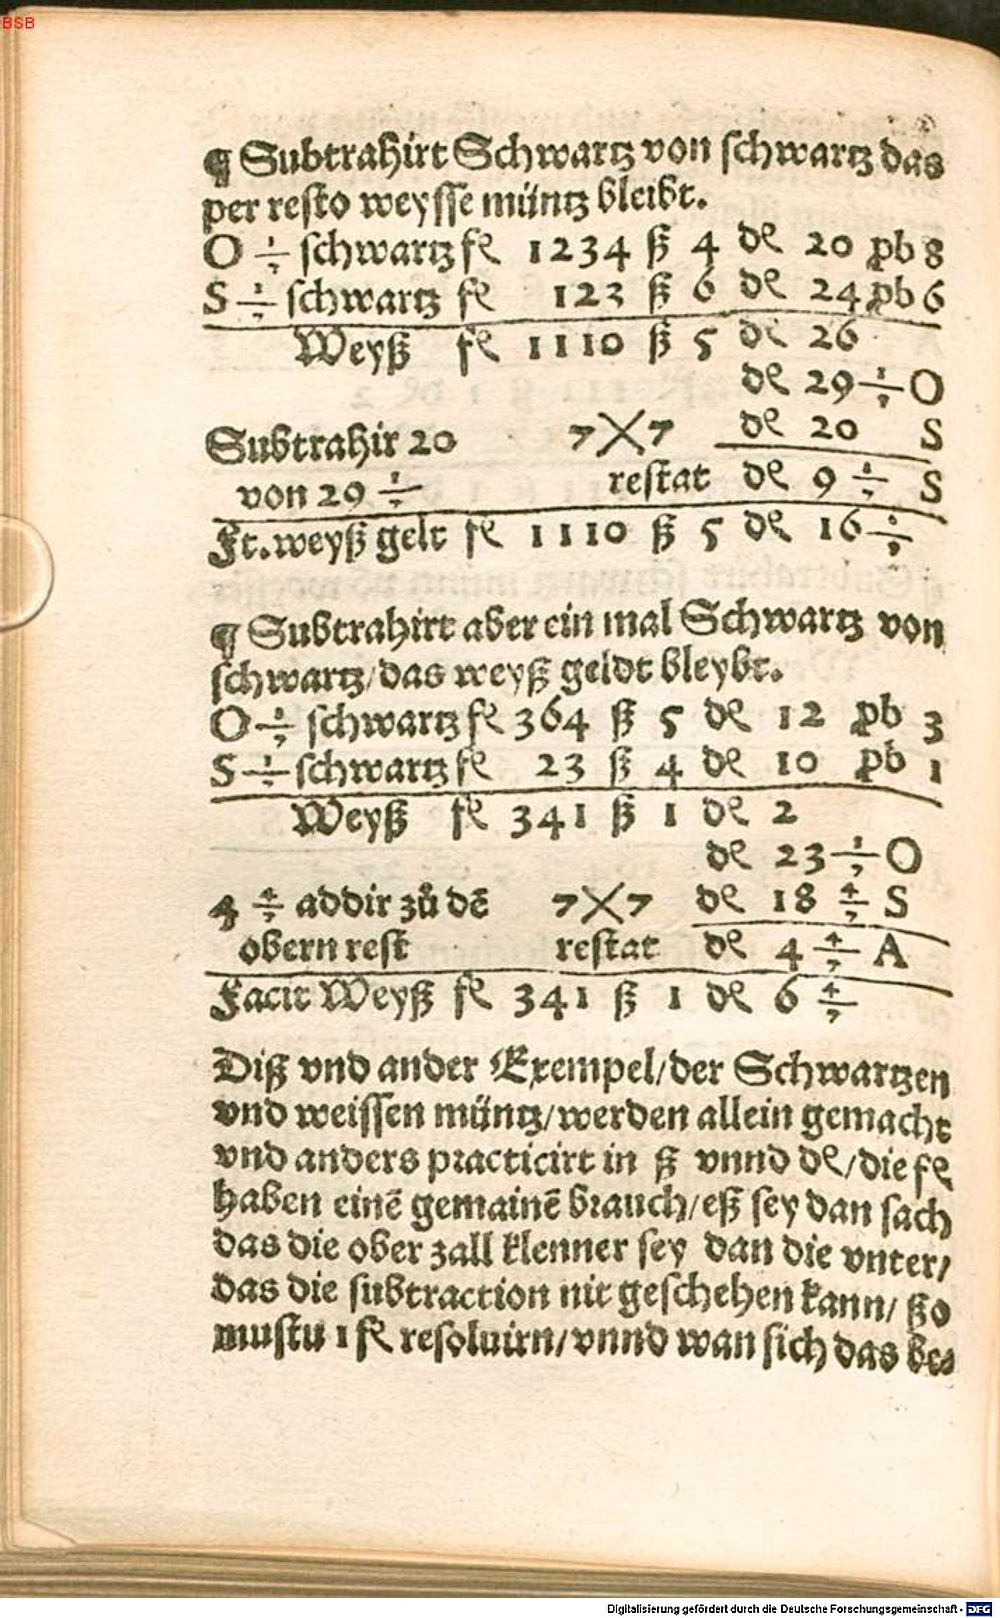 BSB
¶ Subtrahirt Schwartz von schwartz das
per resto weysse müntz bleibt.
O 1/7 schwartz fl 1234 ß 4 dl 20 pb 8
S 1/7 schwartz fl 123 ß 6 dl 24 pb 6
Weyß fl 1110 ß 5 dl 26
dl 29 1/7 O
Subtrahir 20 7╳7 dl 20 S
von 29 1/7 restat dl 9 1/7 S
Ft. weyß gelt fl 1110 ß 5 dl 16 6/7
¶ Subtrahirt aber ein mal Schwartz von
schwartz/das weyß geldt bleybt.
O 1/7 schwartz fl 364 ß 5 dl 12 pb 3
S 1/7 schwartz fl 23 ß 4 dl 10 pb 1
Weyß fl 341 ß 1 dl 2
dl 23 1/7 O
4 4/7 addir zů dẽ 7╳7 dl 18 4/7 S
obern rest restat dl 4 4/7 A
Facit Weyß fl 341 ß 1 dl 6 4/7
Diß vnd ander Exempel/der Schwartzen
vnd weissen müntz/werden allein gemacht
vnd anders practicirt in ß vnnd dl/die fl
haben einẽ gemainẽ brauch/eß sey dan sach
das die ober zall klenner sey dan die vnter/
das die subtraction nit geschehen kann/ ßo
mustu 1 fl resoluirn/vnnd wan sich das be⸗
Digitalisierung gefördert durch die Deutsche Forschungsgemeinschaft - DFG